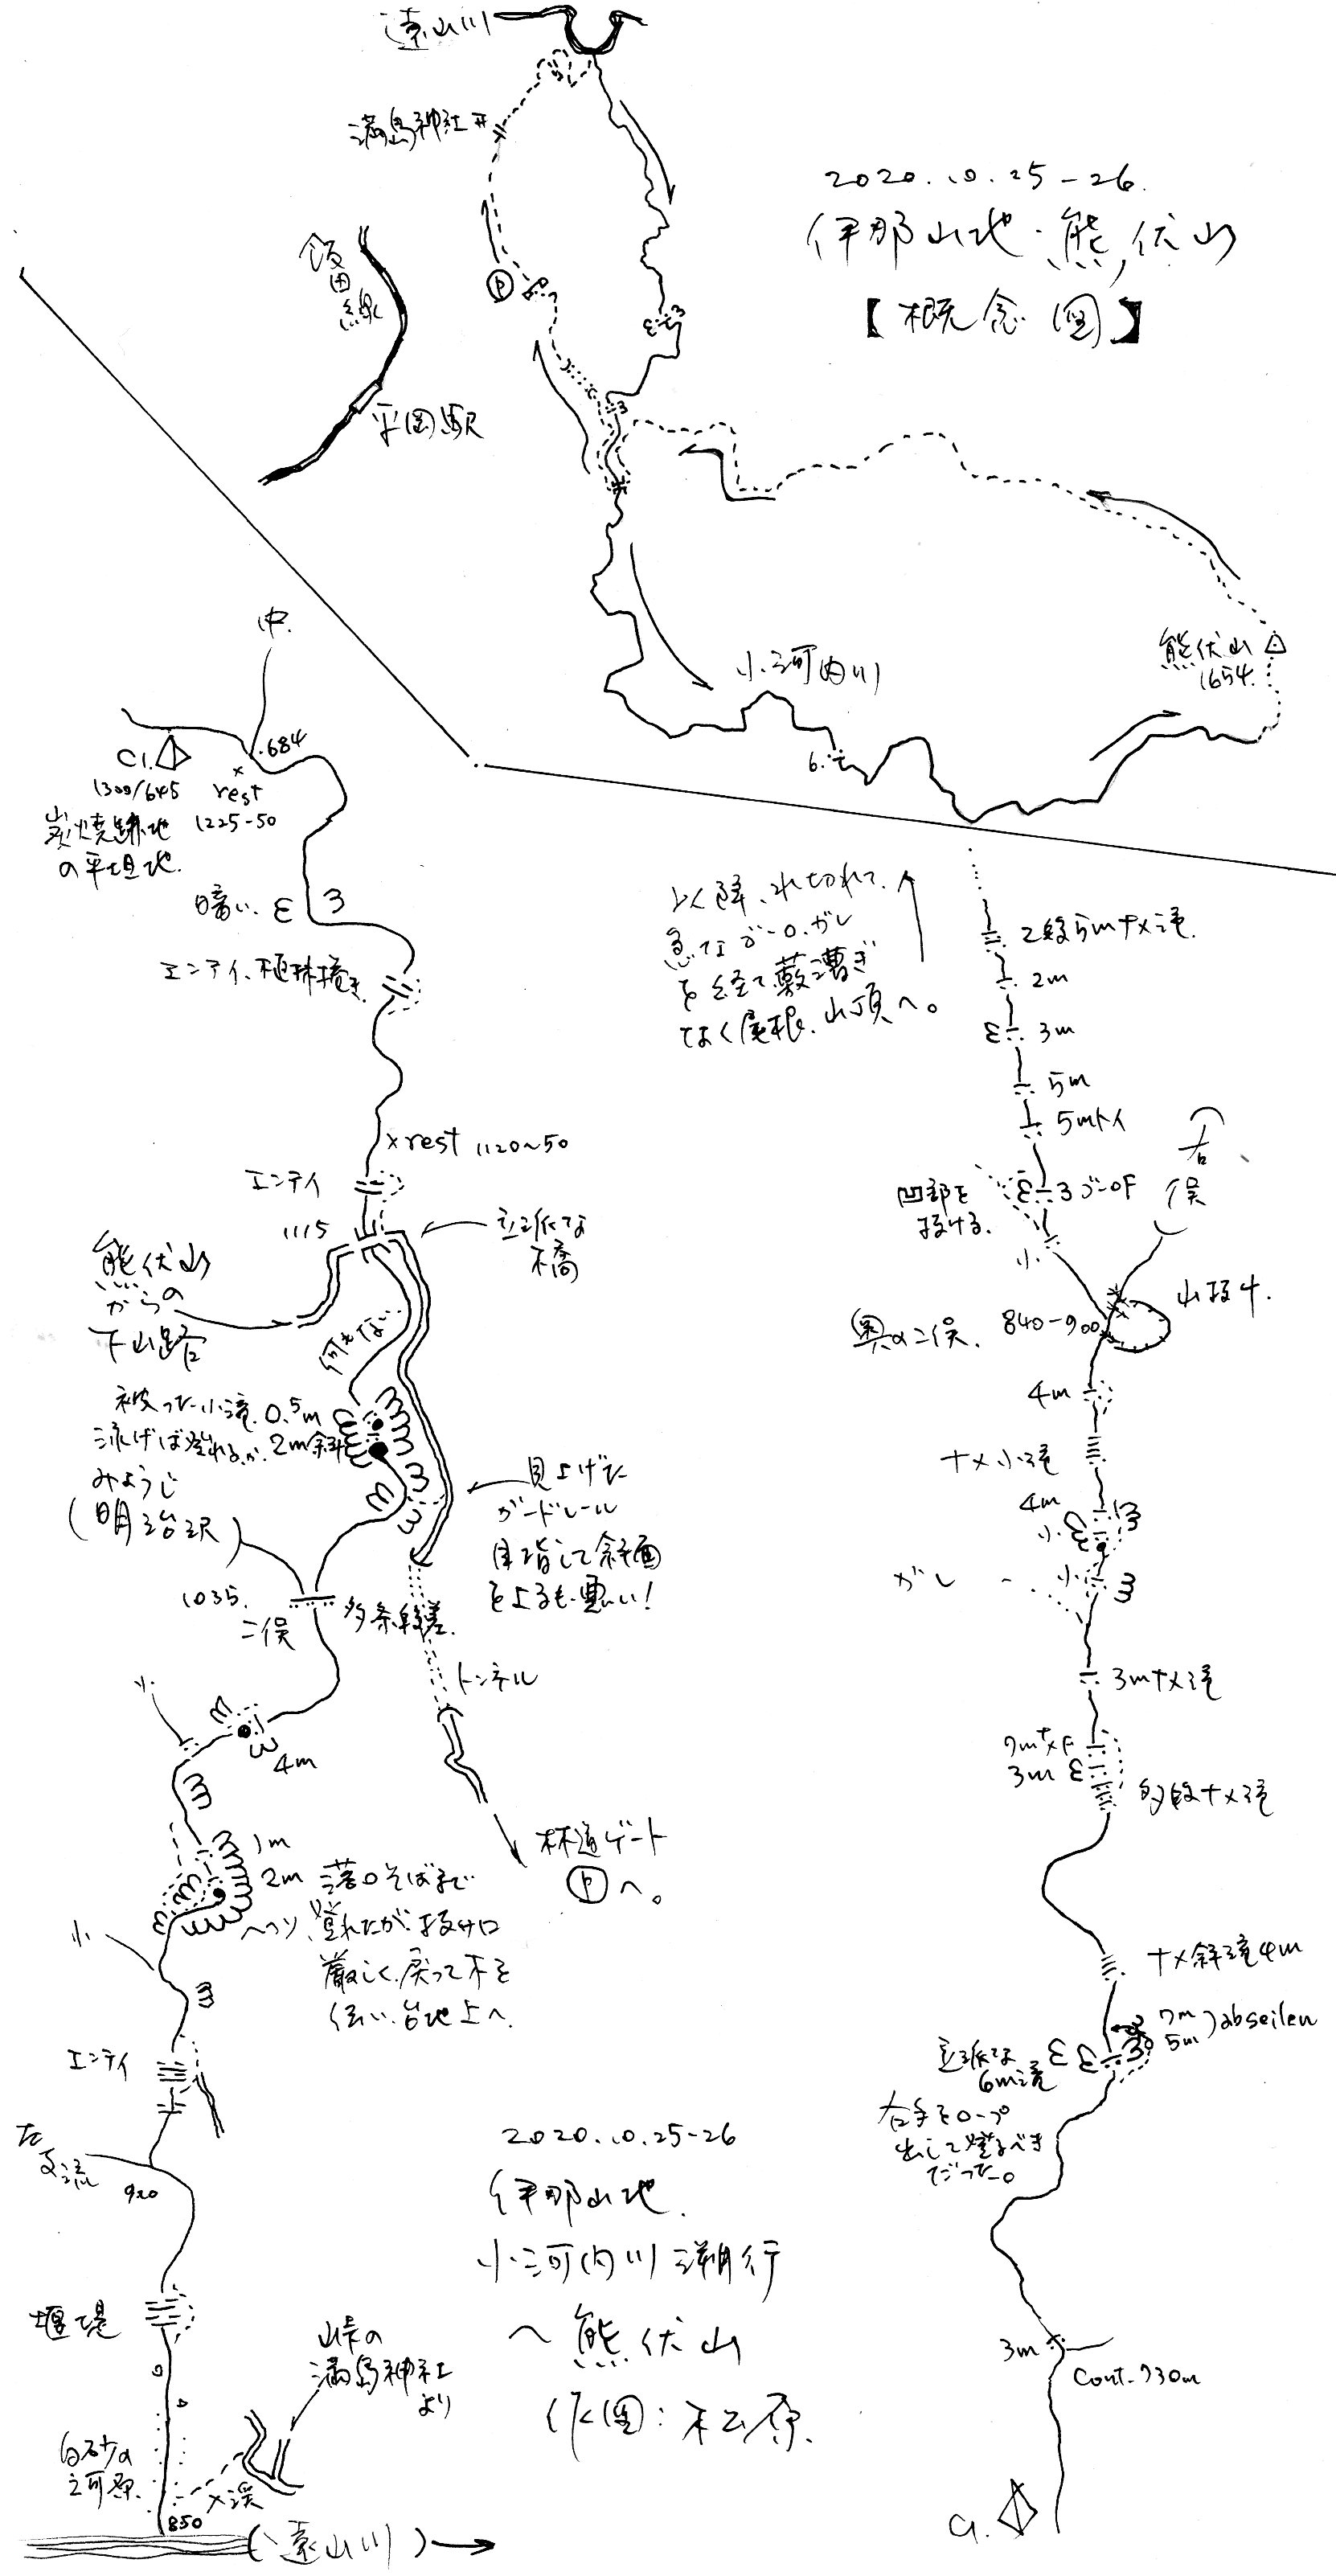 遠山川
満島神社
2020.10.25-26.
伊那山地・熊伏山
【概念図】
飯田線
平岡駅
P
3
3
小河内川
熊伏山
1654.
6.
中.
.684
C1.
1300/645
炭焼跡地
の平坦地.
rest
1225-50
暗い.
3
エンテイ.
rest 1120~50
エンテイ
1115
立派な
橋
熊伏山
からの
下山路
何もない
被った小滝 0.5m
泳げば登れるが. 2m斜
みょうじ
(明治沢)
見上げた
ガードレール
目指して斜面
をよるも悪い!
1035.
二俣
多条段差.
トンネル
小.
4m
林道ゲート
Pへ。
1m
2m
落口そばまで
ヘツリ登れたが抜け口
厳しく戻って木を
伝い.台地上へ.
小.
エンテイ
左
支流
920
堰堤
白砂の
河原.
850
×渓
峠の
満島神社
より
(遠山川)
2020.10.25-26
伊那山地.
小河内川遡行
～熊伏山
作図:松原.
よく降られ切れて.
急なゴーロ.ガレ
を経て藪漕ぎ
なく尾根.山頂へ。
2段5mナメ滝.
2m
3m
5m
5mトイ
凹部を
抜ける.
3 ゴーロF
小.
(右俣)
山抜け.
奥の二俣.
840-900
4m
ナメ小滝
4m
小.
ガレ
小.
3mナメ滝
7mナメF
3m
多段ナメ滝
ナメ斜滝4m
7m
5m
abseilen
立派な
6m滝
右手をロープ
出して登るべき
だった。
3m
Cont.730m
C1.